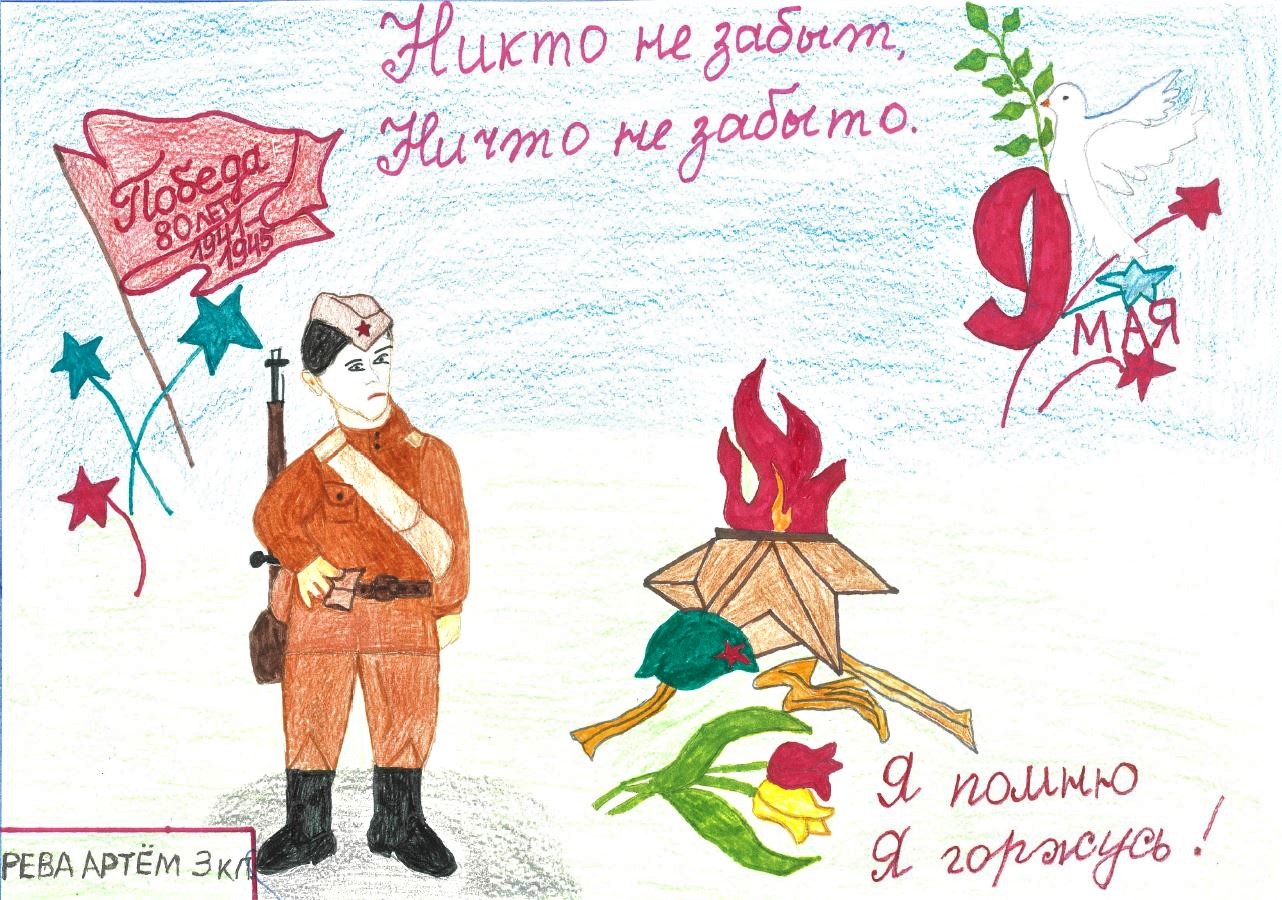 Никто не забыт,
Ничто не забыто.
Победа
80 ЛЕТ
1941-
1945
9
МАЯ
Я помню
Я горжусь!
РЕВА АРТЁМ 3 кл